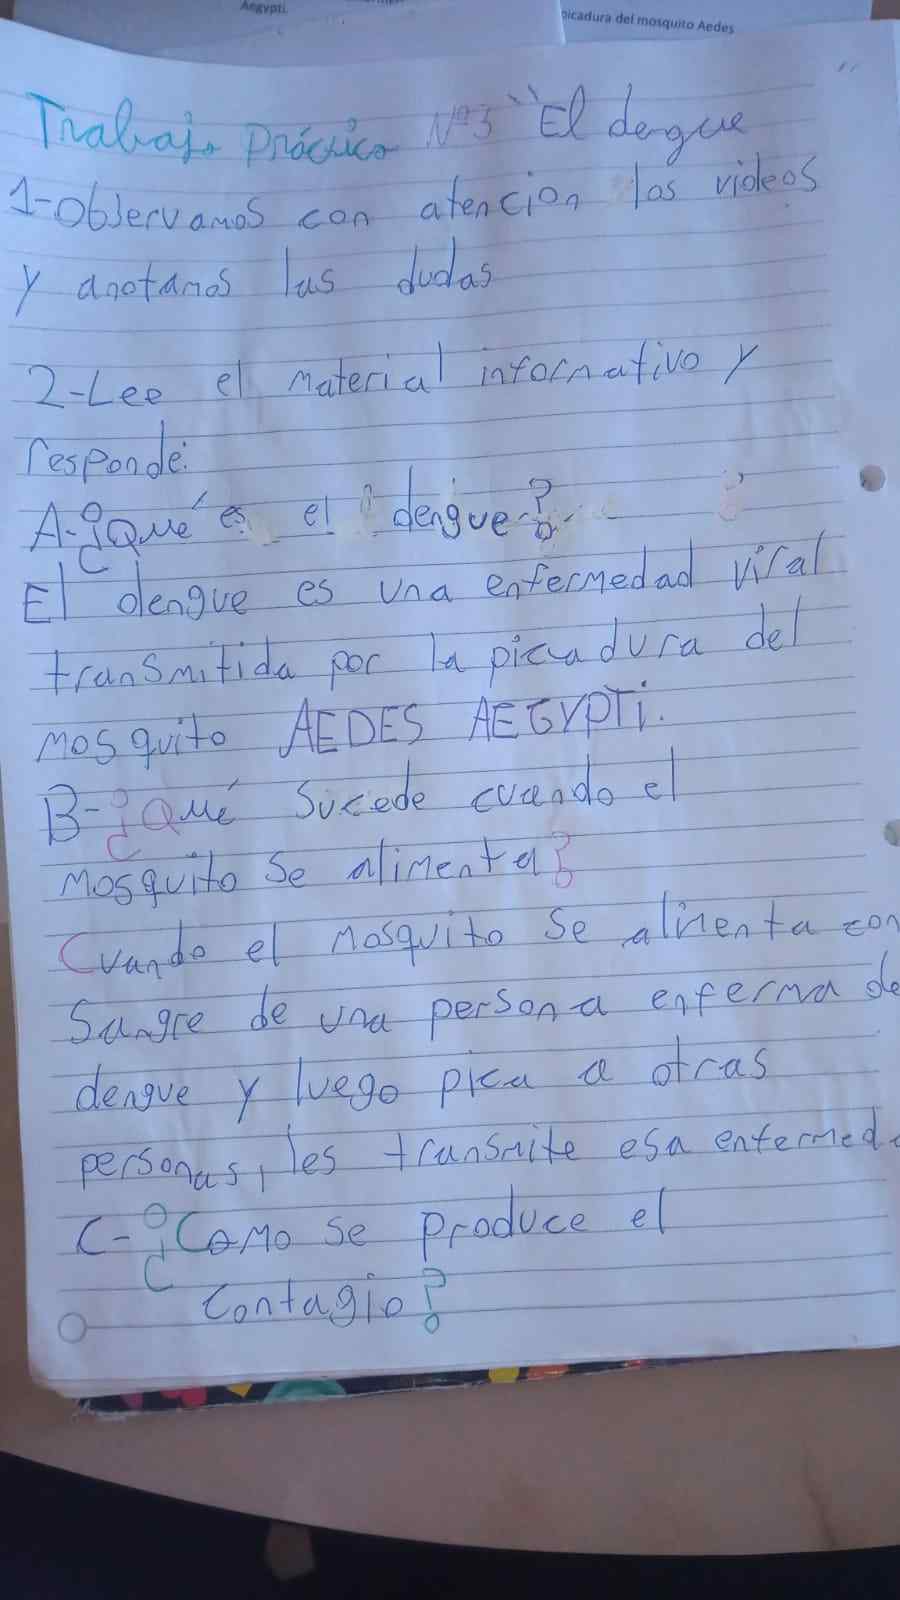 Aegypti.
picadura del mosquito Aedes
Trabajo Práctico Nº3 "El dengue"
1-Observamos con atencion los videos
y anotamos las dudas
2-Lee el material informativo y
responde:
A-¿Qué es el dengue?
El dengue es una enfermedad viral
transmitida por la picadura del
mosquito AEDES AEGYPTi.
B-¿Qué sucede cuando el
mosquito se alimenta?
Cuando el mosquito se alimenta con
sangre de una persona enferma de
dengue y luego pica a otras
personas, les transmite esa enfermed
C-¿Como se produce el
contagio?